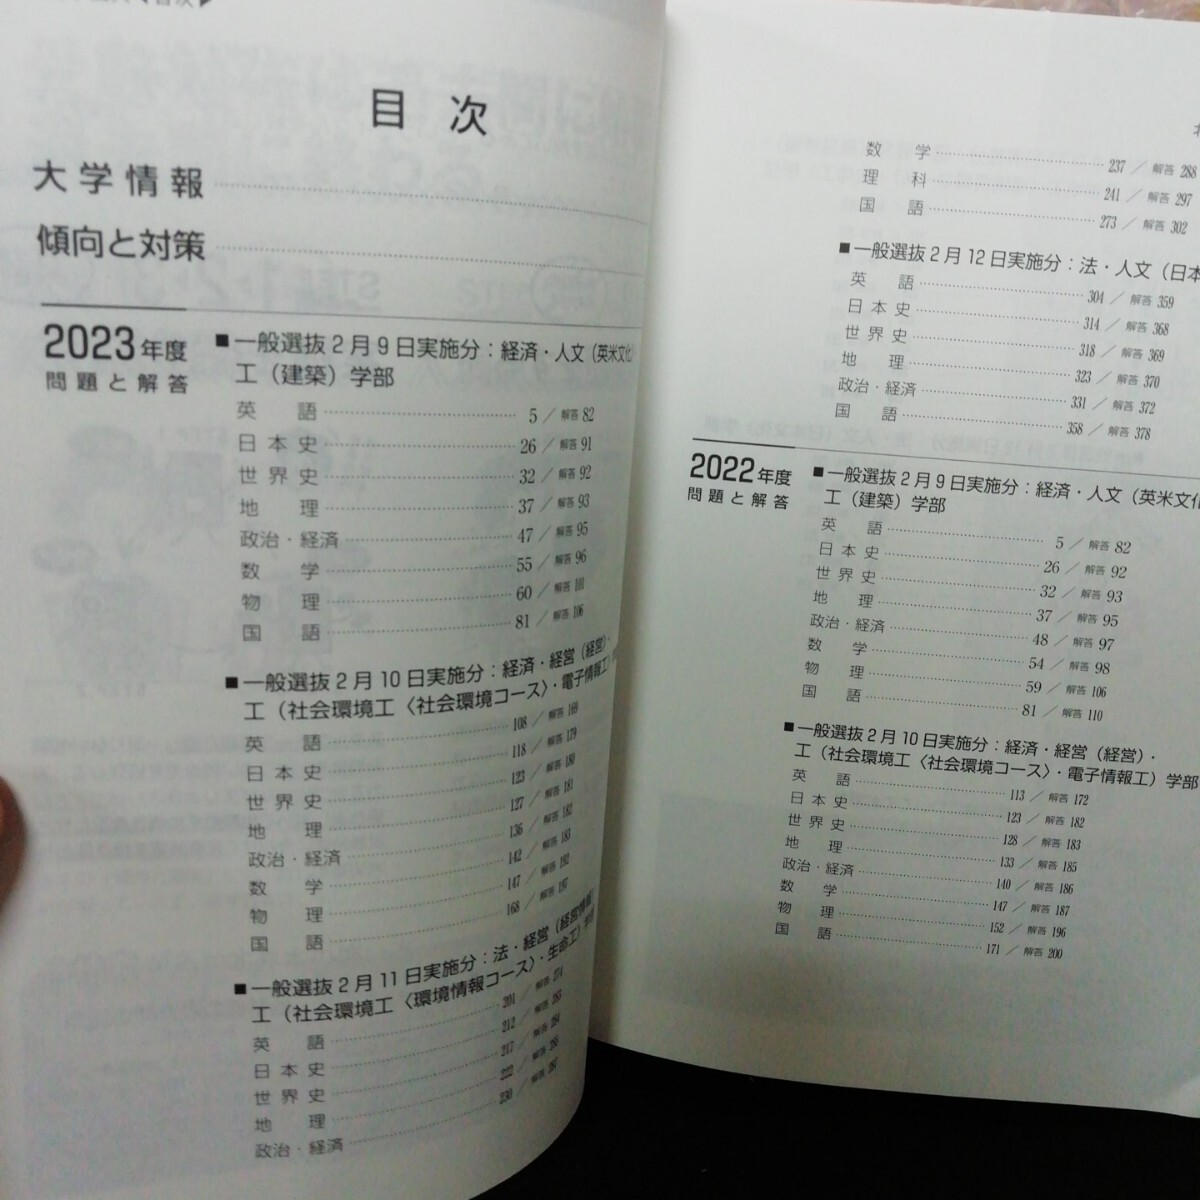 目次
大学情報
傾向と対策
2023年度
問題と解答
■一般選抜2月9日実施分：経済・人文（英米文化）
工（建築）学部
英語 5／解答82
日本史 26／解答91
世界史 32／解答92
地理 37／解答93
政治・経済 47／解答95
数学 55／解答96
物理 60／解答101
国語 81／解答106
■一般選抜2月10日実施分：経済・経営（経営）・
工（社会環境工〈社会環境コース〉・電子情報工）
英語 108／解答169
日本史 118／解答179
世界史 123／解答180
地理 127／解答181
政治・経済 136／解答182
数学 142／解答183
物理 147／解答192
国語 168／解答197
■一般選抜2月11日実施分：法・経営（経営情報）
工（社会環境工〈環境情報コース〉・生命工）学部
英語 201／解答274
日本史 212／解答283
世界史 217／解答284
地理 222／解答285
政治・経済 230／解答287
数学 237／解答288
理科 241／解答297
国語 273／解答302
■一般選抜2月12日実施分：法・人文（日本
英語 304／解答359
日本史 314／解答368
世界史 318／解答369
地理 323／解答370
政治・経済 331／解答372
国語 358／解答378
2022年度
問題と解答
■一般選抜2月9日実施分：経済・人文（英米文化
工（建築）学部
英語 5／解答82
日本史 26／解答92
世界史 32／解答93
地理 37／解答95
政治・経済 48／解答97
数学 54／解答98
物理 59／解答106
国語 81／解答110
■一般選抜2月10日実施分：経済・経営（経営）・
工（社会環境工〈社会環境コース〉・電子情報工）学部
英語 113／解答172
日本史 123／解答182
世界史 128／解答183
地理 133／解答185
政治・経済 140／解答186
数学 147／解答187
物理 152／解答196
国語 171／解答200